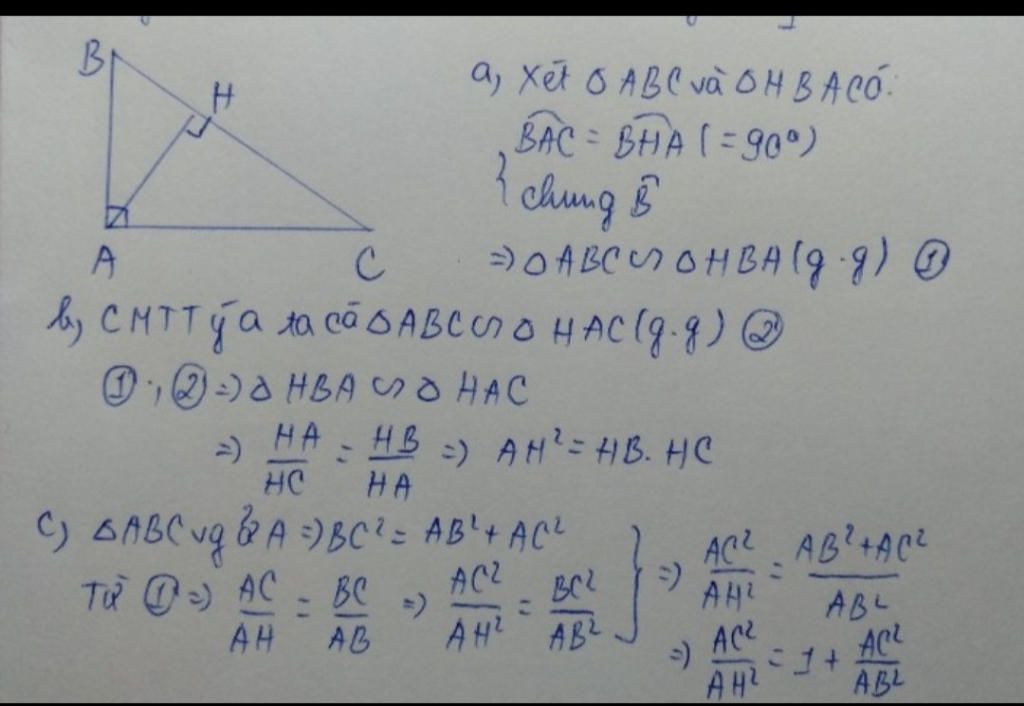 B
H
A
C
a, Xét △ABC và △HBA có:
{ BAC^ = BHA^ (= 90°)
chung B^
=> △ABC ∽ △HBA (g.g) ①
b, CMTT ý a ta có △ABC ∽ △HAC (g.g) ②
①, ② => △HBA ∽ △HAC
=> HA/HC = HB/HA => AH² = HB.HC
c) △ABC vg ở A => BC² = AB² + AC²
Từ ① => AC/AH = BC/AB => AC²/AH² = BC²/AB² } => AC²/AH² = AB²+AC²/AB²
=> AC²/AH² = 1 + AC²/AB²